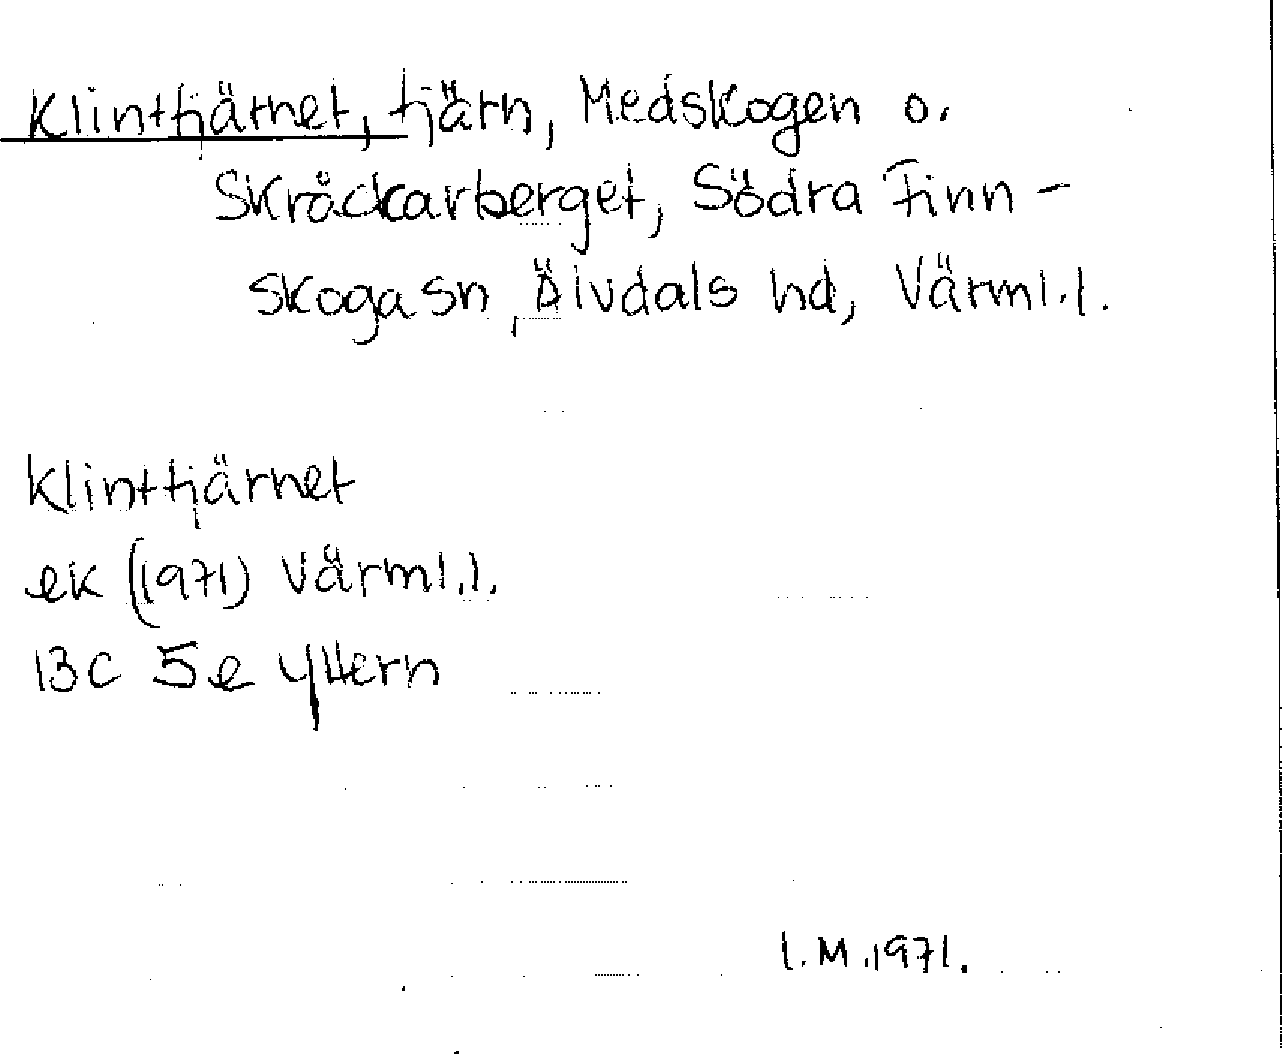 Klinttjärnet, tjärn, Medskogen o.
Skråckarberget, Södra Finn-
skoga sn, Älvdals hd, Värml.l.
Klinttjärnet
ek (1971) Värml.l.
13C 5e Yttern
I.M.1971.